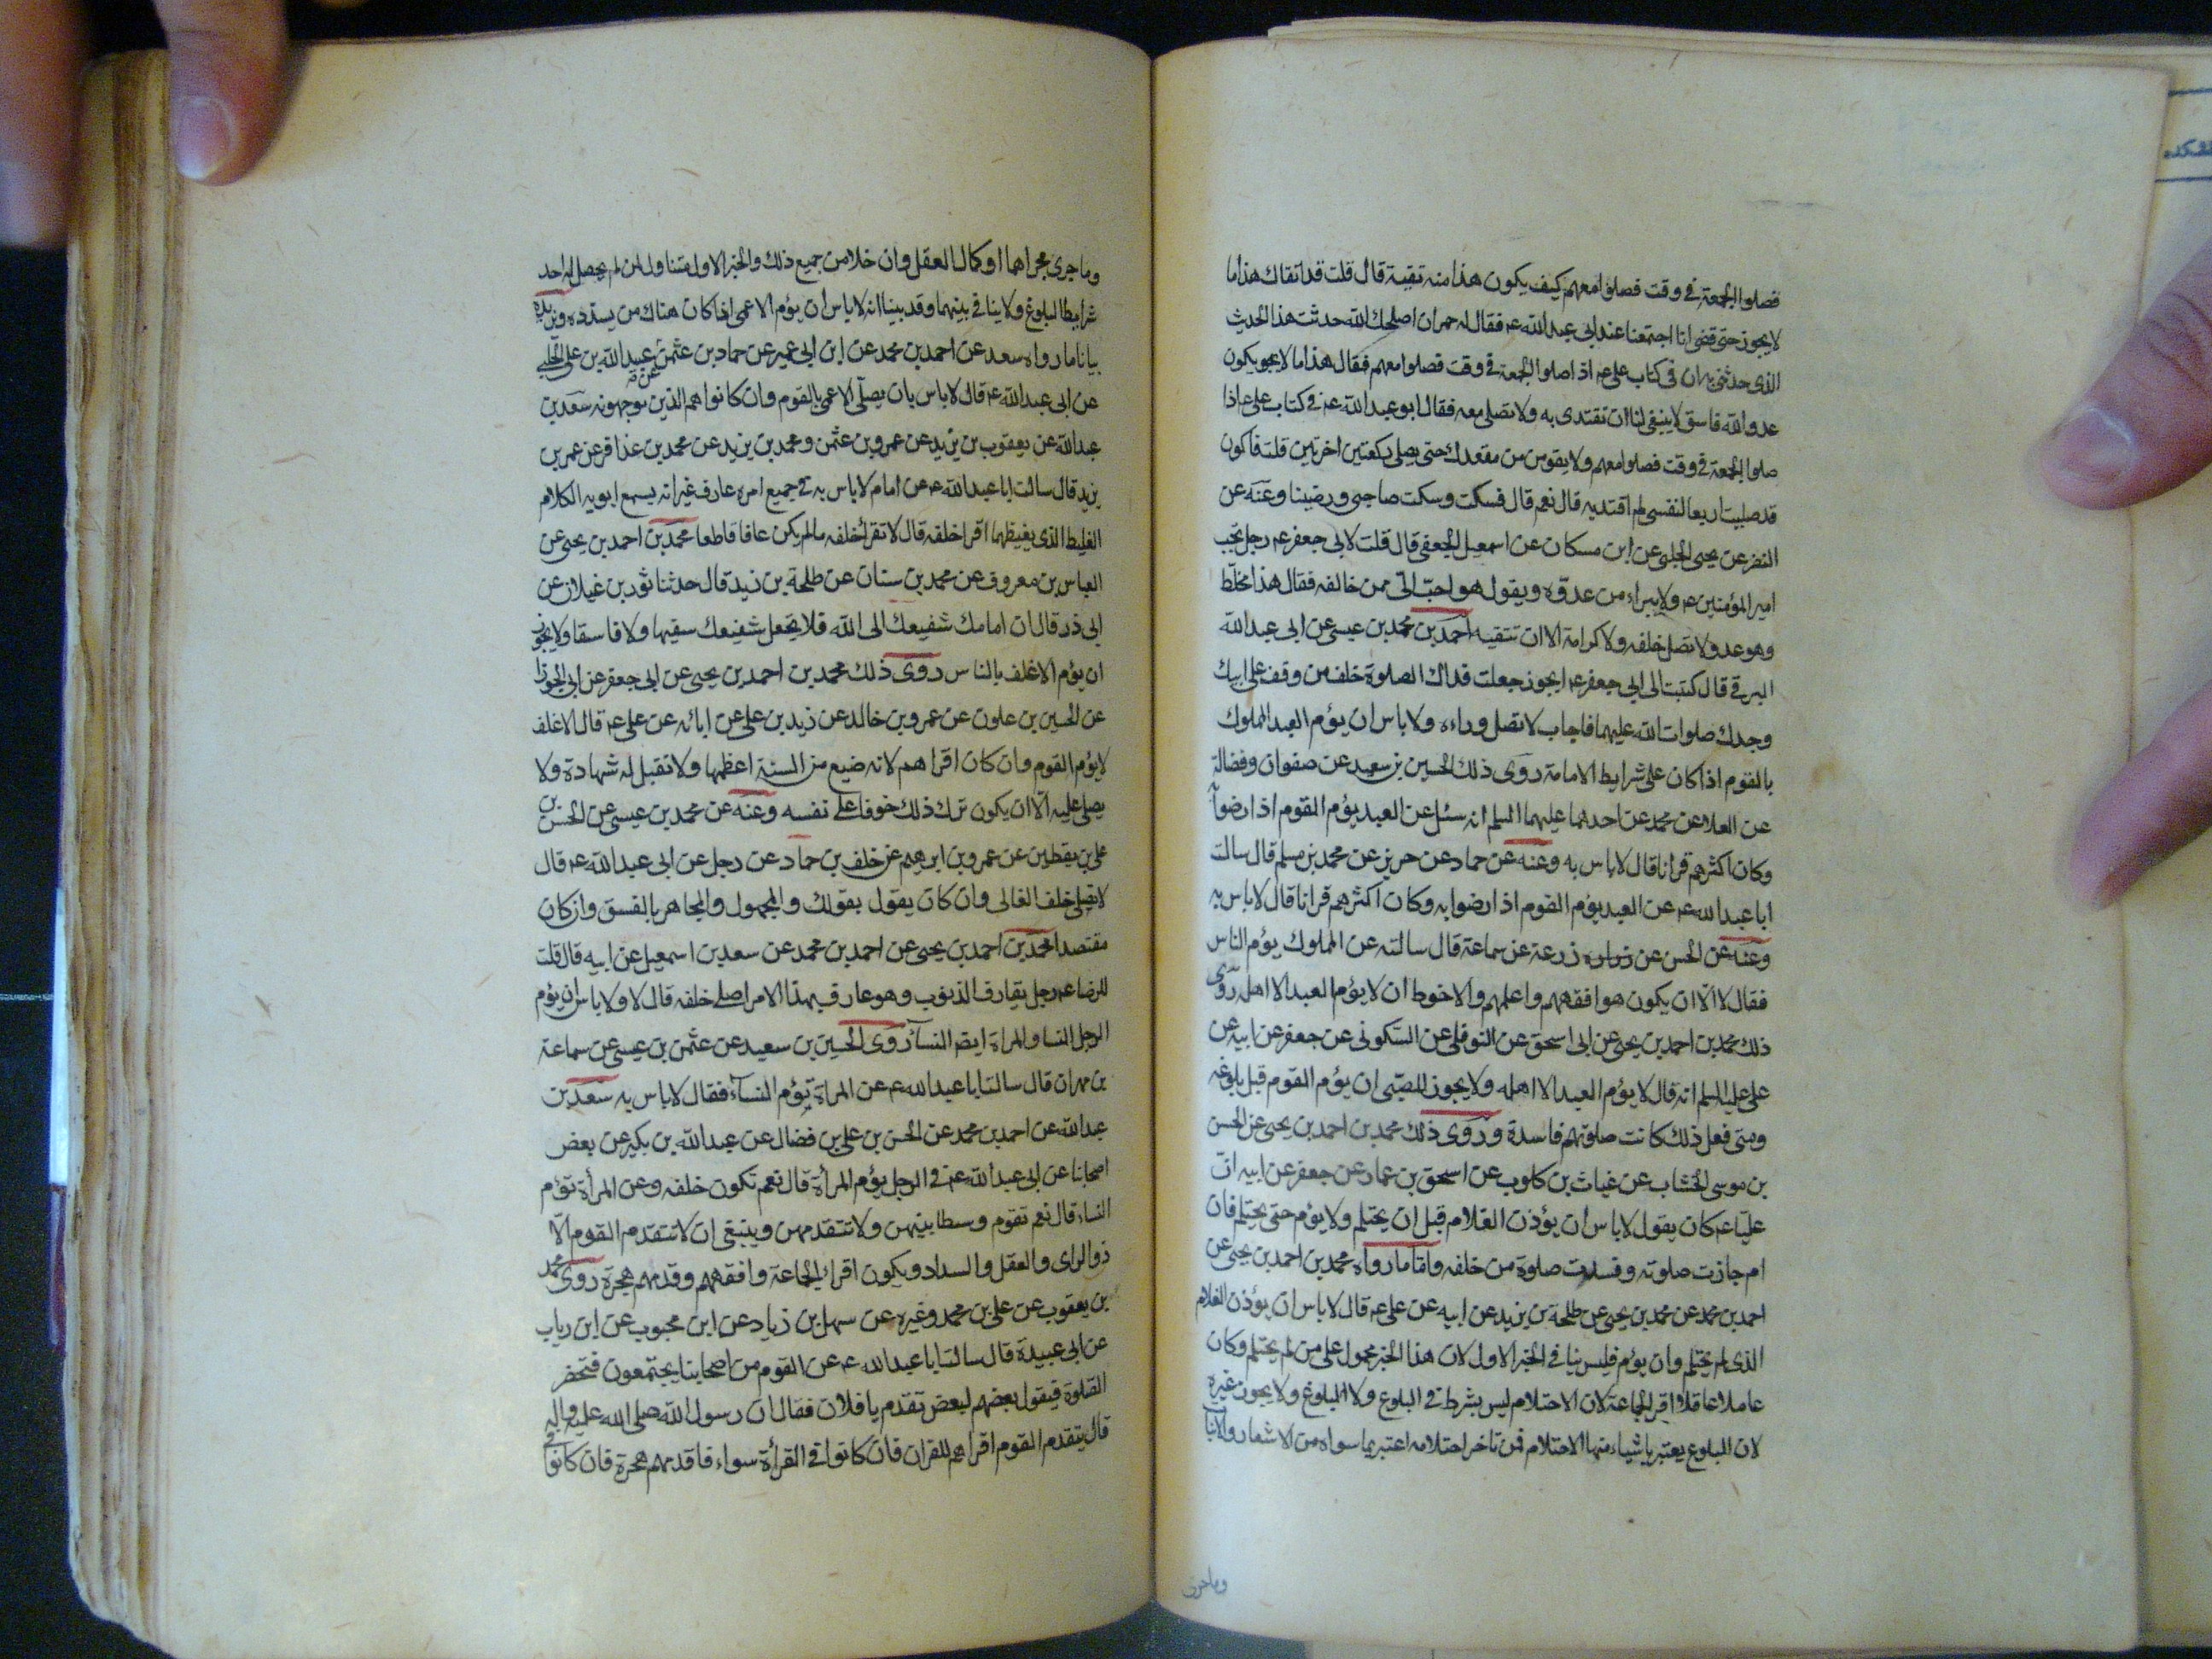 فصلوا الجمعة في وقت فصلوا معهم كيف يكون هذا منه تقية قال قلت قد اتقاك هذا ما
لا يجوز حتى قضى انا اجتمعنا عند ابي عبد الله ع فقال له حمران اصلحك الله حدثت هذا الحديث
الذي حدثني به ان في كتاب علي ع اذا صلوا الجمعة في وقت فصلوا معهم فقال هذا ما لا يجوز يكون
عدو الله فاسق لا ينبغي لنا ان نقتدي به ولا نصلي معه فقال ابو عبد الله ع في كتاب علي ع اذا
صلوا الجمعة في وقت فصلوا معهم ولا يقومن من مقعدك حتى يصلي ركعتين اخرتين قلت فاكون
قد صليت اربعا لنفسي لم اقتد به قال نعم قال فسكت وسكت صاحبي ورضينا وعنه عن
النضر عن يحيى الحلبي عن ابن مسكان عن اسمعيل الجعفي قال قلت لابي جعفر ع رجل يحب
امير المؤمنين ع ولا يبراء من عدوه ويقول هو احب الي ممن خالفه فقال هذا مخلط
وهو عدو ولا تصل خلفه ولا كرامة الا ان تتقيه احمد بن محمد بن عيسى عن ابي عبد الله
البرقي قال كتبت الى ابي جعفر ع ايجوز جعلت فداك الصلوة خلف من وقف على ابيك
وجدك صلوات الله عليهما فاجاب لا تصل وراءه ولا باس ان يؤم العبد المملوك
بالقوم اذا كان على شرايط الامامة روى ذلك الحسين بن سعيد عن صفوان وفضالة
عن العلا عن محمد عن احدهما عليهما السلم انه سئل عن العبد يؤم القوم اذا رضوا
وكان اكثرهم قرانا قال لا باس به وعنه عن حماد عن حريز عن محمد بن مسلم قال سالت
ابا عبد الله ع عن العبد يؤم القوم اذا رضوا به وكان اكثرهم قرانا قال لا باس به
وعنه عن الحسن عن زرعة عن سماعة قال سالته عن المملوك يؤم الناس
فقال لا الا ان يكون هو افقههم واعلمهم والاحوط ان لا يؤم العبد الا اهله روى
ذلك محمد بن احمد بن يحيى عن ابي اسحق عن النوفلي عن السكوني عن جعفر عن ابيه عن
علي عليه السلم انه قال لا يؤم العبد الا اهله ولا يجوز للصبي ان يؤم القوم قبل بلوغه
ومتى فعل ذلك كانت صلوتهم فاسدة وروى ذلك محمد بن احمد بن يحيى عن الحسن
بن موسى الخشاب عن غياث بن كلوب عن اسحق بن عمار عن جعفر عن ابيه ان
عليا ع كان يقول لا باس ان يؤذن الغلام قبل ان يحتلم ولا يؤم حتى يحتلم فان
ام جازت صلوته وفسدت صلوة من خلفه واما ما رواه محمد بن احمد بن يحيى عن
احمد بن محمد عن محمد بن يحيى عن طلحة بن يزيد عن ابيه عن علي ع قال لا باس ان يؤذن الغلام
الذي لم يحتلم وان يؤم فليس ينافي الخبر الاول لان هذا الخبر محمول على من لم يحتلم وكان
عاملا عاقلا اقرا الجماعة لان الاحتلام ليس بشرط في البلوغ ولا البلوغ ولا يجوز غيره
لان البلوغ يعتبر باشياء منها الاحتلام فمن تاخر احتلامه اعتبر بما سواه من الاشعار والانبات
وما جرى
وما جرى مجراها او كمال العقل وان خلا من جميع ذلك والخبر الاول متناول لمن لم يحصل له احد
شرايط البلوغ ولا ينافي بينهما وقد بينا انه لا باس ان يؤم الاعمى اذا كان هناك من يسدده ونزيده
بيانا ما رواه سعد عن احمد بن محمد عن ابن ابي عمير عن حماد بن عثمن عن عبيد الله بن علي الحلبي
عن ابي عبد الله ع قال لا باس بان يصلي الاعمى بالقوم وان كانوا هم الذين يوجهونه سعد بن
عبد الله عن يعقوب بن يزيد عن عمرو بن عثمن ومحمد بن يزيد عن محمد بن عذافر عن عمر بن
يزيد قال سالت ابا عبد الله ع عن امام لا باس به في جميع امره عارف غير انه يسمع ابويه الكلام
الغليظ الذي يغيظهما اقرا خلفه قال لا تقرا خلفه ما لم يكن عاقا قاطعا محمد بن احمد بن يحيى عن
العباس بن معروف عن محمد بن سنان عن طلحة بن زيد قال حدثنا ثور بن غيلان عن
ابي ذر قال ان امامك شفيعك الى الله فلا تجعل شفيعك سفيها ولا فاسقا ولا يجوز
ان يؤم الاغلف بالناس روى ذلك محمد بن احمد بن يحيى عن ابي جعفر عن ابي الجوزا
عن الحسين بن علوان عن عمرو بن خالد عن زيد بن علي عن ابائه عن علي ع قال الاغلف
لا يؤم القوم وان كان اقراهم لانه ضيع من السنة اعظمها ولا تقبل له شهادة ولا
يصلى عليه الا ان يكون ترك ذلك خوفا على نفسه وعنه عن محمد بن عيسى عن الحسن بن
علي بن يقطين عن عمرو بن ابرهيم عن خلف بن حماد عن رجل عن ابي عبد الله ع قال
لا تصل خلف الغالي وان كان يقول بقولك والمجهول والمجاهر بالفسق وان كان
مقتصدا محمد بن احمد بن يحيى عن احمد بن محمد عن سعد بن اسمعيل عن ابيه قال قلت
للرضا ع رجل يقارف الذنوب وهو عارف بهذا الامر اصلي خلفه قال لا ولا باس ان يؤم
الرجل النسا والمراة ايضا النساء روى الحسين بن سعيد عن عثمن بن عيسى عن سماعة
بن مهران قال سالت ابا عبد الله ع عن المراة تؤم النساء فقال لا باس به سعد بن
عبد الله عن احمد بن محمد عن الحسن بن علي بن فضال عن عبد الله بن بكير عن بعض
اصحابنا عن ابي عبد الله ع في الرجل يؤم المرأة قال نعم تكون خلفه وعن المرأة تؤم
النساء قال نعم تقوم وسطا بينهن ولا تتقدمهن وينبغي ان لا تتقدم القوم الا
ذو الراى والعقل والسداد ويكون اقراء الجماعة وافقههم وقدمهم هجرة روى محمد
بن يعقوب عن علي بن محمد وغيره عن سهل بن زياد عن ابن محبوب عن ابن رياب
عن ابي عبيدة قال سالت ابا عبد الله ع عن القوم من اصحابنا يجتمعون فتحضر
الصلوة فيقول بعضهم لبعض تقدم يا فلان فقال ان رسول الله صلى الله عليه واله
قال يتقدم القوم اقراهم للقران فان كانوا في القرأة سواء فاقدمهم هجرة فان كانوا في